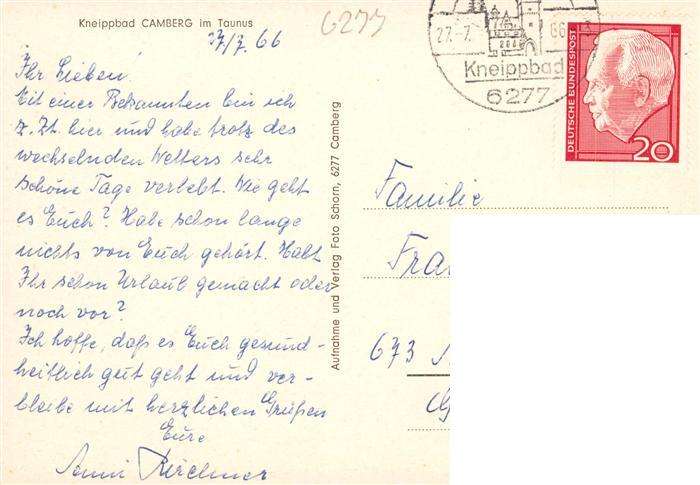 Kneippbad CAMBERG im Taunus
6277
27/7. 66
Ihr Lieben.
Mit einer Bekannten bin ich
z. Zt. hier und habe trotz des
wechselnden Wetters sehr
schöne Tage verlebt. Wie geht
es Euch? Habe schon lange
nichts von Euch gehört. Habt
Ihr schon Urlaub gemacht oder
noch vor?
Ich hoffe, daß es Euch gesund-
heitlich gut geht und ver-
bleibe mit herzlichen Grüßen
Eure
Anni Kirchner
Aufnahme und Verlag Foto Schorn, 6277 Camberg
27.-7. 66
Kneippbad
6277
DEUTSCHE BUNDESPOST
20
Familie
Fra
673